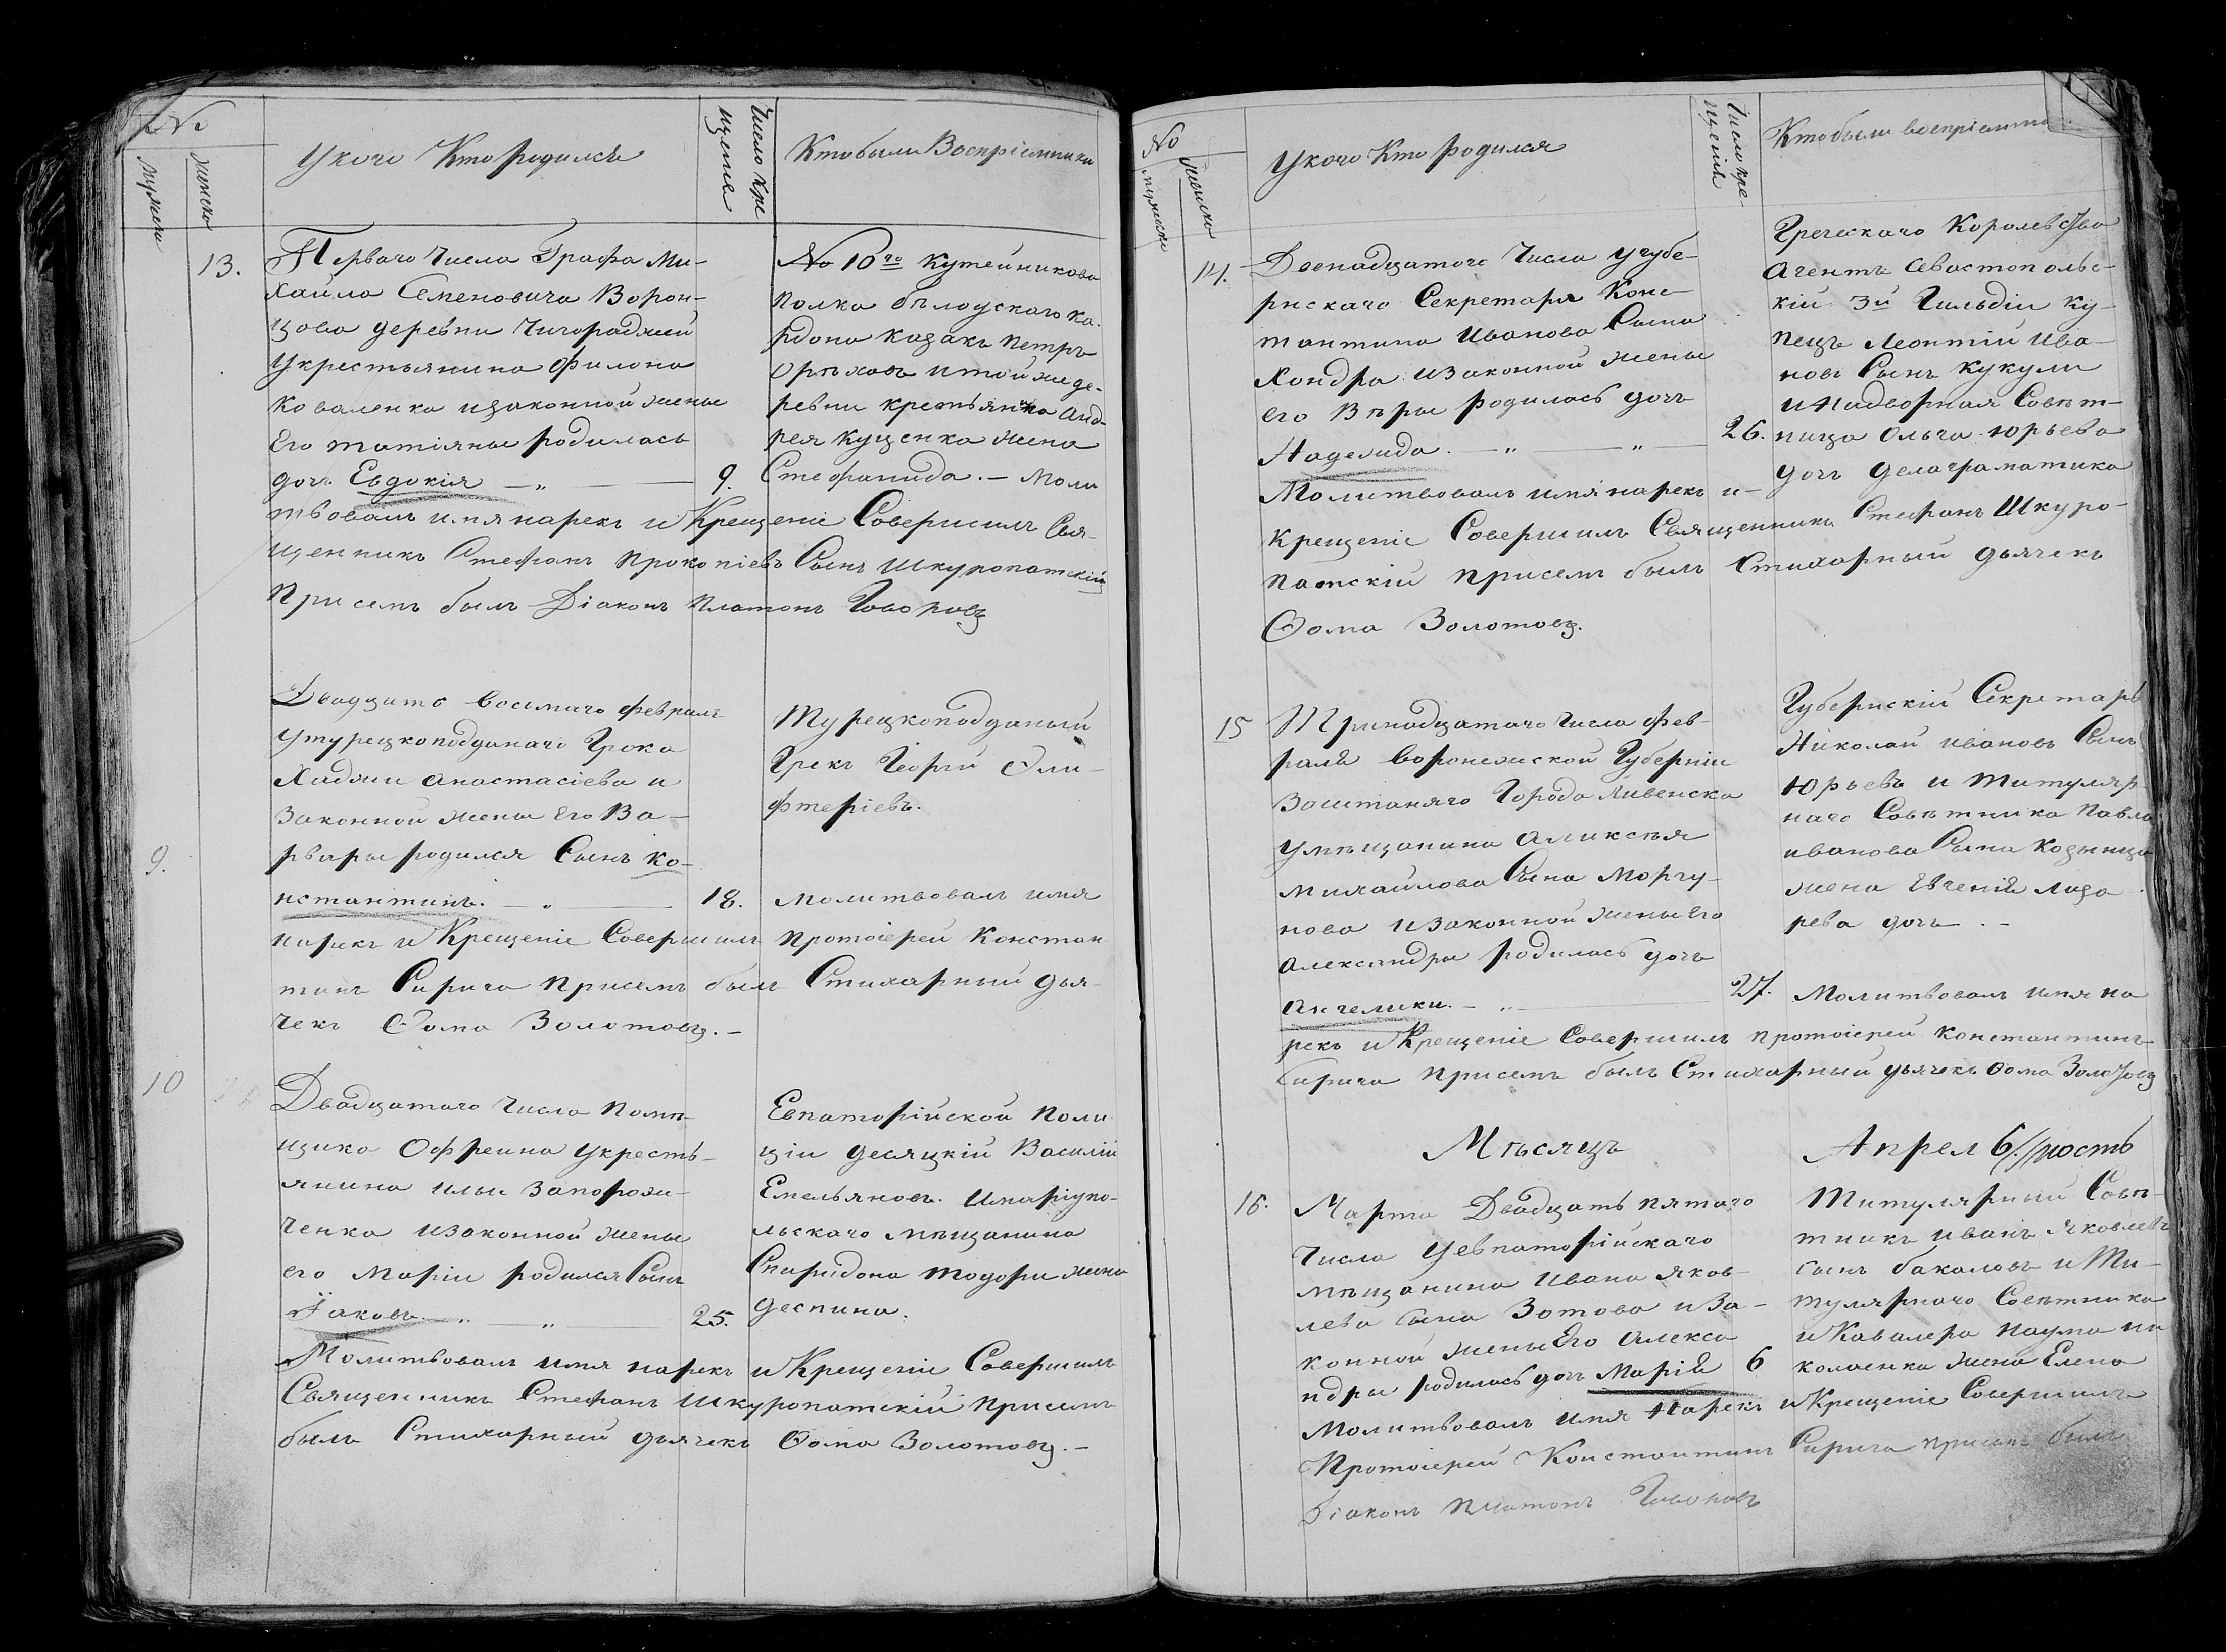 №
мужеска
женска
У кого Кто родился
Число кре
щения
Кто были Восприемники
13.
Перваго Числа Графа Ми-
хайла Семеновича Ворон-
цова деревни
у крестьянина Филона
Коваленка изаконной жены
Его татіяны родилась
дочь Евдокія — „ — 9.
№ 10го Кутейникова
полка
рдона казакъ петръ
Орѣховъ итой же де-
ревни крестьянина Анд-
рея Куценка жена
Стефанида. — Моли
твовалъ имя нарекъ и Крещеніе Совершилъ Свя-
щенникъ Стефанъ прокопіевъ Сынъ Шкуропатскій
При семъ былъ Діаконъ Платонъ Говоровъ
9.
Двадцать восьмаго февраля
утурецкоподданаго Грека
Хаджи анастасіева и
Законной жены Его Ва-
рвары родился Сынъ Ко-
нстантинъ. — „ — 18.
Турецкоподданый
Грекъ Георгій Эли-
фтеріевъ.
молитвовалъ имя
нарекъ и Крещеніе Совершилъ протоіерей Констан
тинъ Сирига присемъ былъ Стихарный дья-
чекъ Ѳома Золотовъ. —
10
Двадцатаго Числа помѣ-
щика Офреина укресть-
янина ильи Запорож-
ченка изаконной жены
его Маріи родился Сынъ
Іаковъ „ — „ — 25.
Евпаторійской поли
ціи десяцкій Василій
Емельяновъ. Имаріупо-
льскаго мѣщанина
Спиридона Тодори жена
деспина.
Молитвовалъ имя нарекъ и Крещеніе Совершилъ
Священникъ Стефанъ Шкуропатскій присемъ
былъ Стихарный дьячекъ Ѳома Золотовъ. —
№
мужеска
женска
У кого Кто родился
Число кре-
щенія
Кто были воспріемники
14.
Двенадцатаго Числа угубе-
рнскаго Секретаря Конс-
тантина Иванова Сына
Хондра изаконной жены
его Вѣры родилась дочь
Надежда. — „ — „ — 26.
Греческаго Королевства
Агентъ Севастопольс-
кій 3й Гильдіи ку-
пецъ Леонтій Ива-
новъ Сынъ Кукули
и Надворная Совѣт-
ница Ольга Юрьева
дочь Делаграматика
Молитвовалъ имя нарекъ и-
крещеніе Совершилъ Священникъ Стефанъ Шкуро-
патскій присемъ былъ Стихарный дьячекъ
Ѳома Золотовъ.
15
Тринадцатаго Числа Фев-
раля Воронежской Губерніи
Заштанаго Города Ливенска
умѣщанина Алексѣя
Михайлова Сына Моргу-
нова изаконной жены его
Александры родилась дочь
Ангелики. — „ — 27.
Губернскій Секретарь
Николай Ивановъ Сынъ
Юрьевъ и Титуляр-
наго Совѣтника Павла
иванова Сына Козынца
жена Евгенія Лаза
рева дочь. —
Молитвовалъ имя на
рекъ и Крещеніе Совершилъ протоіерей Константинъ
Сирига присемъ былъ Стихарный дьячекъ Ѳома Золотовъ
Мѣсяцъ
16.
Марта Двадцать пятаго
Числа уевпаторійскаго
мѣщанина Ивана Яков-
лева Сына Зотова и За-
конной жены Его Алекса
ндры родилась дочь Марія 6
Титулярный Совѣ-
тникъ Иванъ Яковлевъ
Сынъ бакаловъ и Ти-
тулярнаго Совѣтника
и Кавалера Наума ни
колаенка жена Елена
Молитвовалъ имя Нарекъ и Крещеніе Совершилъ
Протоіерей Константинъ Сирига присемъ былъ
Діаконъ Платонъ Говоровъ